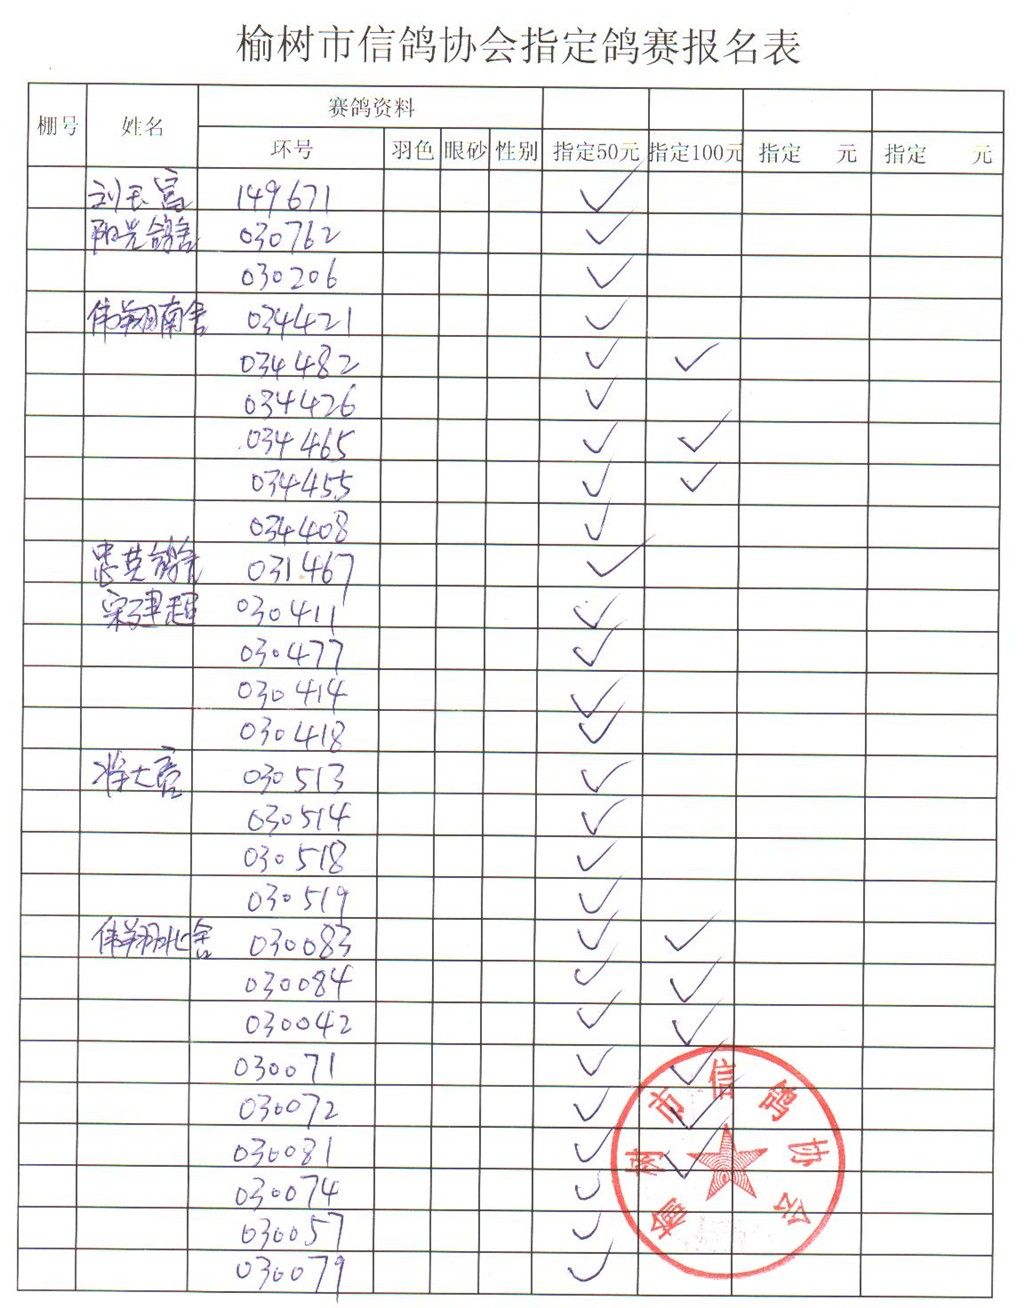 榆树市信鸽协会指定鸽赛报名表
棚号 姓名 赛鸽资料
环号 羽色 眼砂 性别 指定50元 指定100元 指定 元 指定 元
刘玉富 149671 ✓
阳光鸽舍 030762 ✓
030206 ✓
伟翔南舍 034421 ✓
034482 ✓ ✓
034426 ✓
034465 ✓ ✓
034455 ✓ ✓
034408 ✓
忠英鸽舍 031467 ✓
宋建超 030411 ✓
030477 ✓
030414 ✓
030418 ✓
大富 030513 ✓
030514 ✓
030518 ✓
030519 ✓
伟翔北舍 030083 ✓ ✓
030084 ✓ ✓
030042 ✓ ✓
030071 ✓ ✓
030072 ✓ ✓
030081 ✓ ✓
030074 ✓
030057 ✓
030079 ✓
榆树市信鸽协会